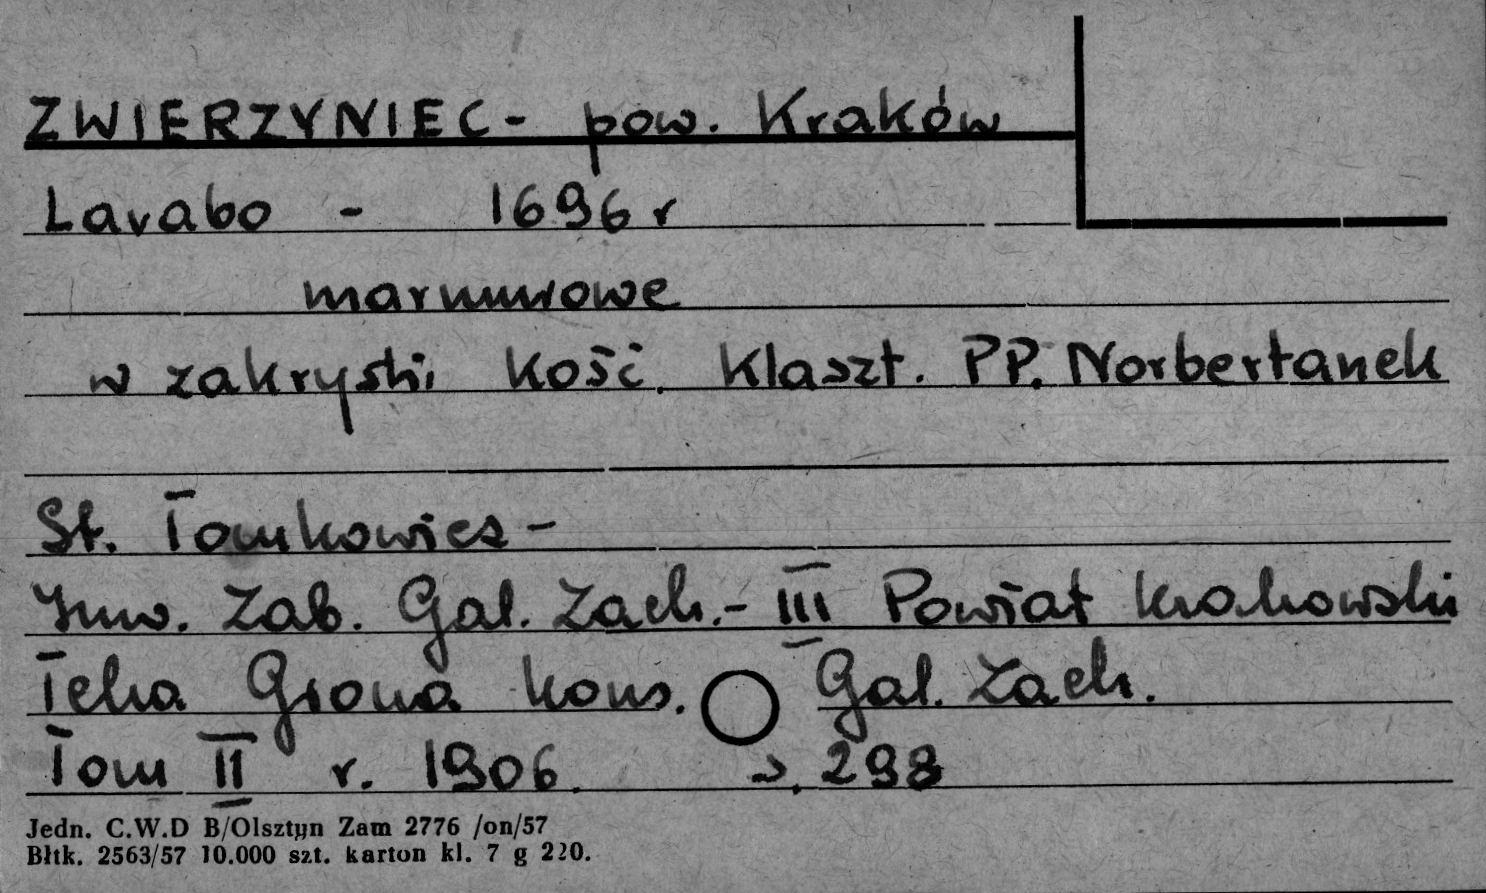 ZWIERZYNIEC - pow. Kraków
Lavabo - 1696 r
marmurowe
w zakrystii Kość. Klaszt. PP. Norbertanek
St. Tomkowicz -
Inw. Zab. Gal. Zach. - III Powiat krakowski
Teka Grona kons. Gal. Zach.
Tom II r. 1906. s. 298
Jedn. C.W.D B/Olsztyn Zam 2776 /on/57
Błtk. 2563/57 10.000 szt. karton kl. 7 g 220.